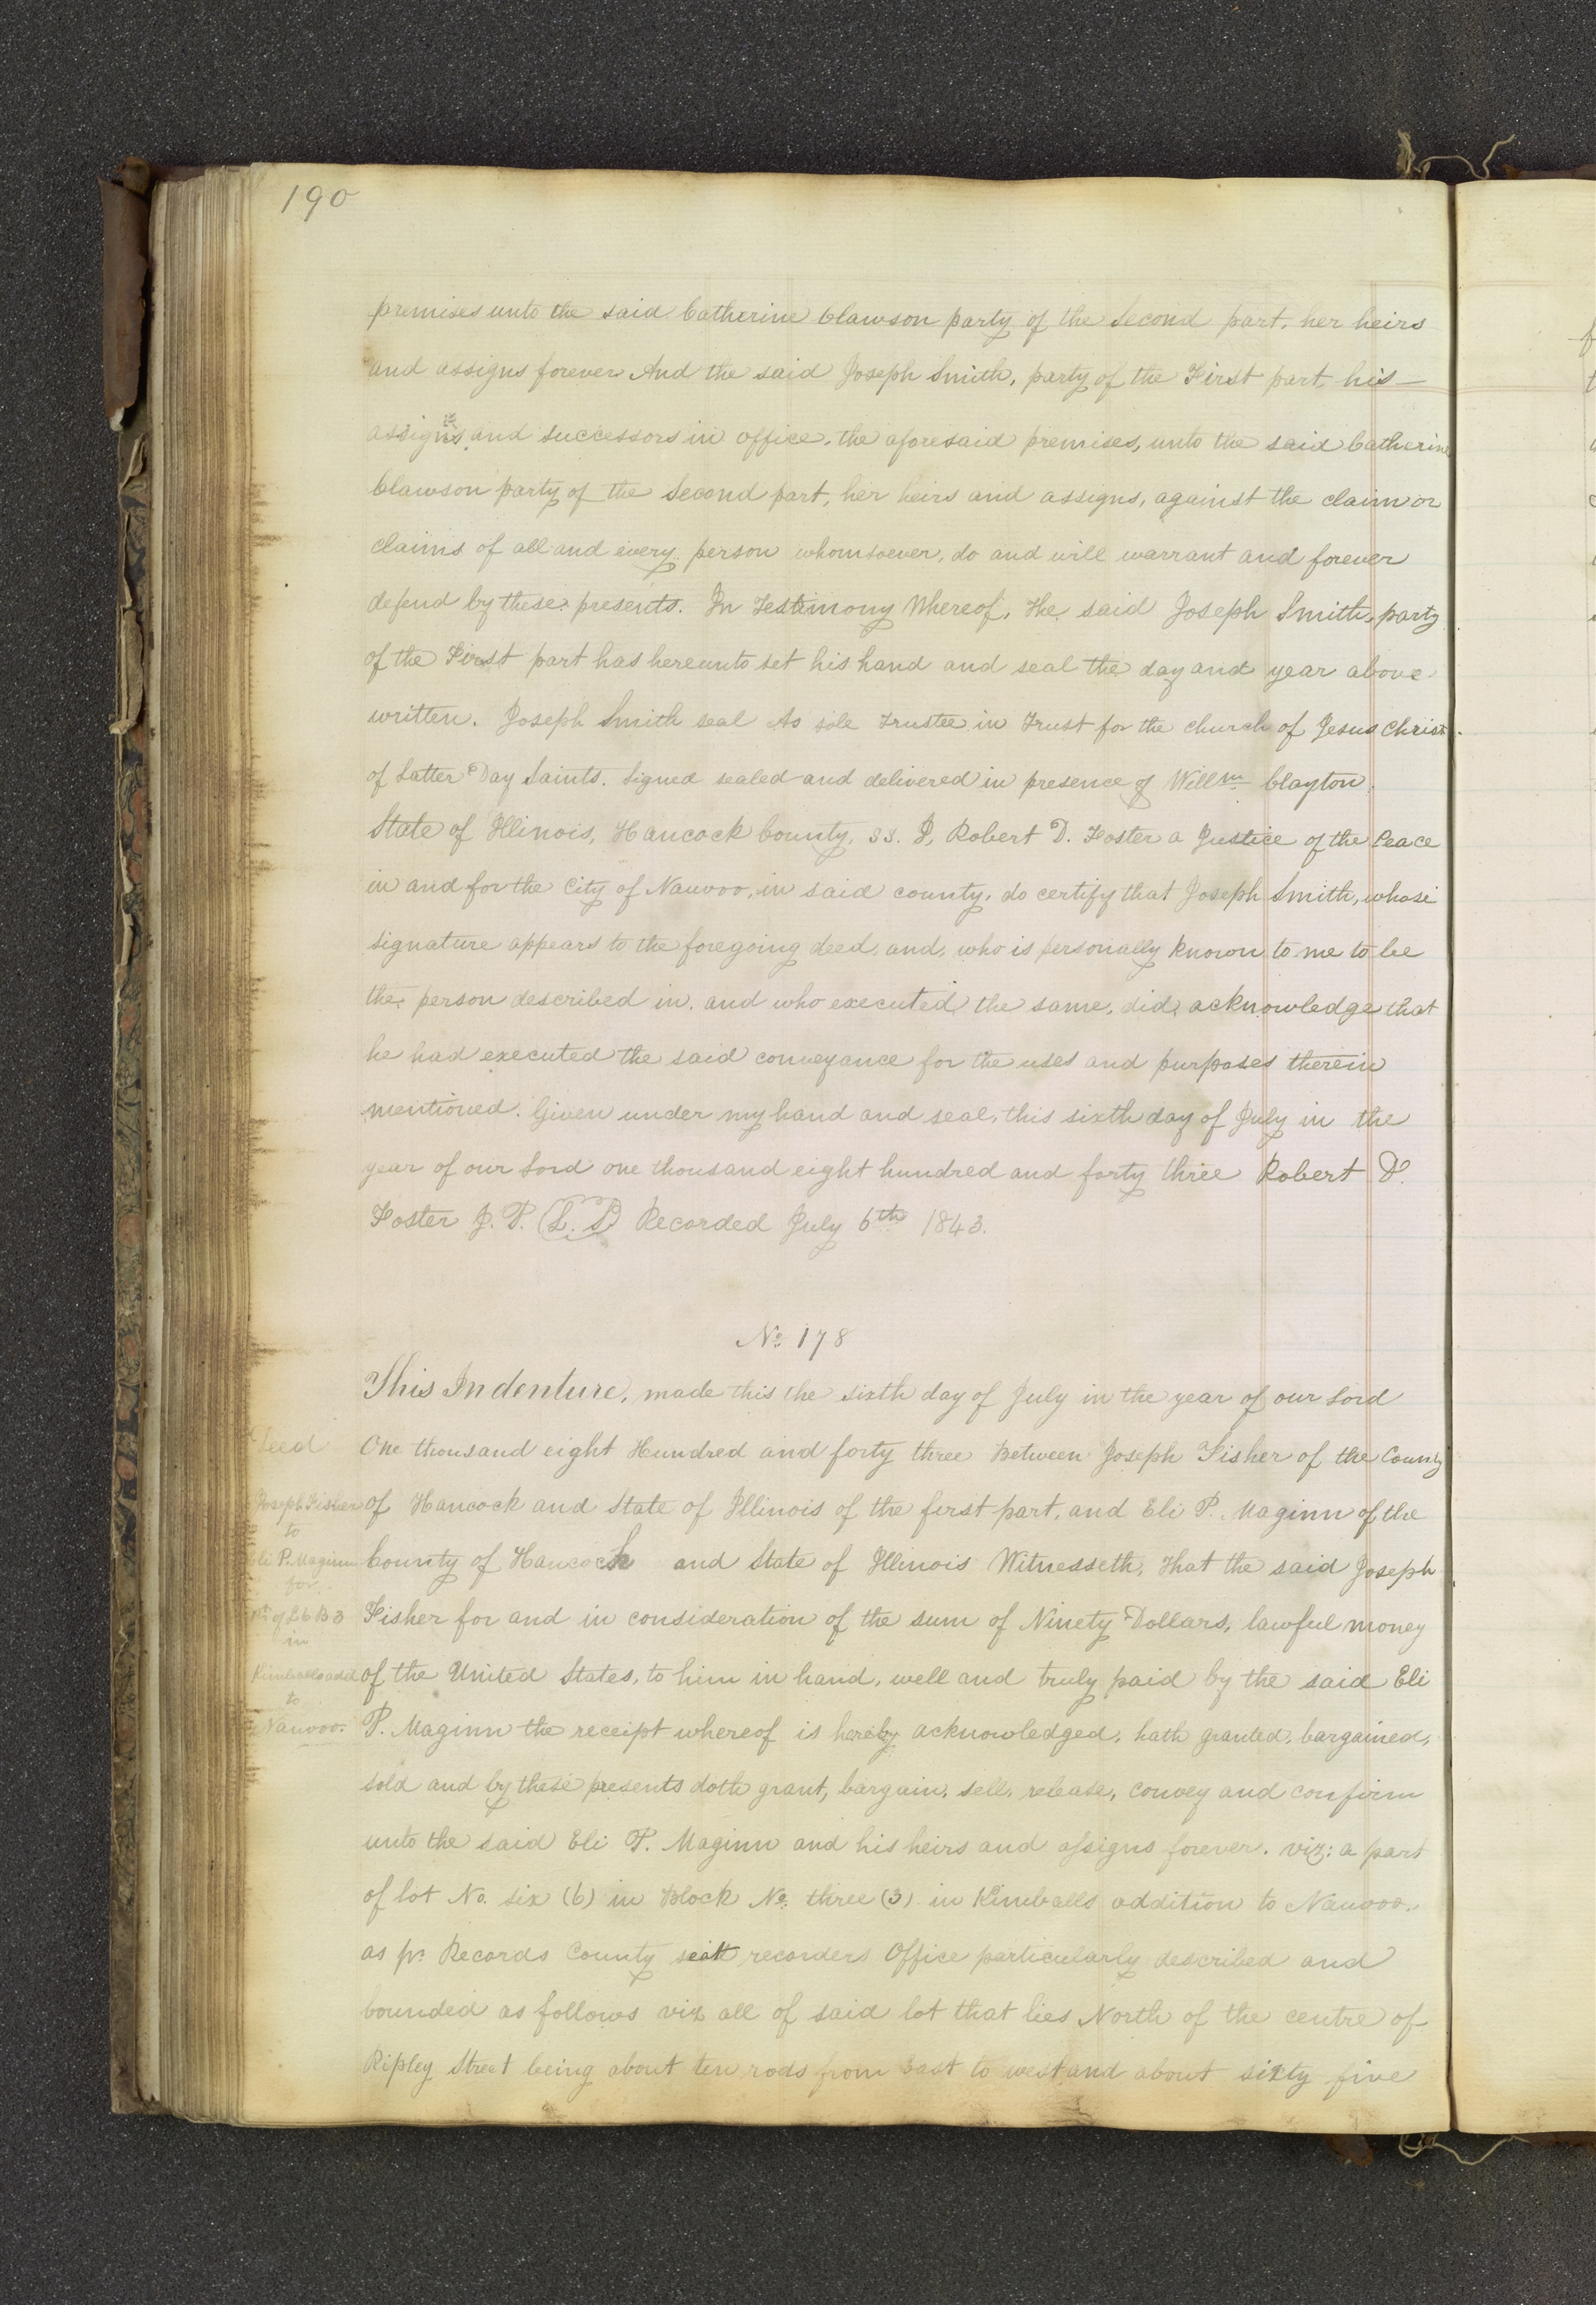 190
premises unto the said Catherine Clawson party of the Second part, her heirs
and assigns forever And the said Joseph Smith, party of the First part, his —
assigns and successors in office, the aforesaid premises, unto the said Catherine
Clawson party of the Second part, her heirs and assigns, against the claim or
claims of all and every person whomsoever, do and will warrant and forever
defend by these presents. In Testimony Whereof, The said Joseph Smith, party
of the First part has hereunto set his hand and seal the day and year above
written. Joseph Smith seal As sole Trustee in Trust for the church of Jesus Christ
of Latter Day Saints. Signed sealed and delivered in presence of Willm Clayton.
State of Illinois, Hancock County, ss. I, Robert D. Foster a Justice of the Peace
in and for the City of Nauvoo, in said county, do certify that Joseph Smith, whose
signature appears to the foregoing deed, and, who is personally known to me to be
the person described in, and who executed the same, did, acknowledge that
he had executed the said conveyance for the uses and purposes therein
mentioned. Given under my hand and seal, this sixth day of July in the
year of our Lord one thousand eight hundred and forty three Robert D.
Foster J. P. (L. S.) Recorded July 6th 1843.
No. 178
This Indenture, made this the sixth day of July in the year of our Lord
One thousand eight Hundred and forty three Between Joseph Fisher of the County
of Hancock and State of Illinois of the first part, and Eli P. Maginn of the
County of Hancock and State of Illinois Witnesseth, That the said Joseph
Fisher for and in consideration of the sum of Ninety Dollars, lawful money
of the United States, to him in hand, well and truly paid by the said Eli
P. Maginn the receipt whereof is hereby acknowledged, hath granted, bargained,
sold and by these presents doth grant, bargain, sell, release, convey and confirm
unto the said Eli P. Maginn and his heirs and assigns forever. viz: a part
of lot No. six (6) in Block No. three (3) in Kimballs addition to Nauvoo.
as pr. Records County seat recorders Office particularly described and
bounded as follows viz all of said lot that lies North of the centre of
Ripley Street being about ten rods from East to west and about sixty five
Deed
Joseph Fisher
to
Eli P. Maginn
for
Pt. of L 6 B 3
in
Kimballs add
to
Nauvoo.